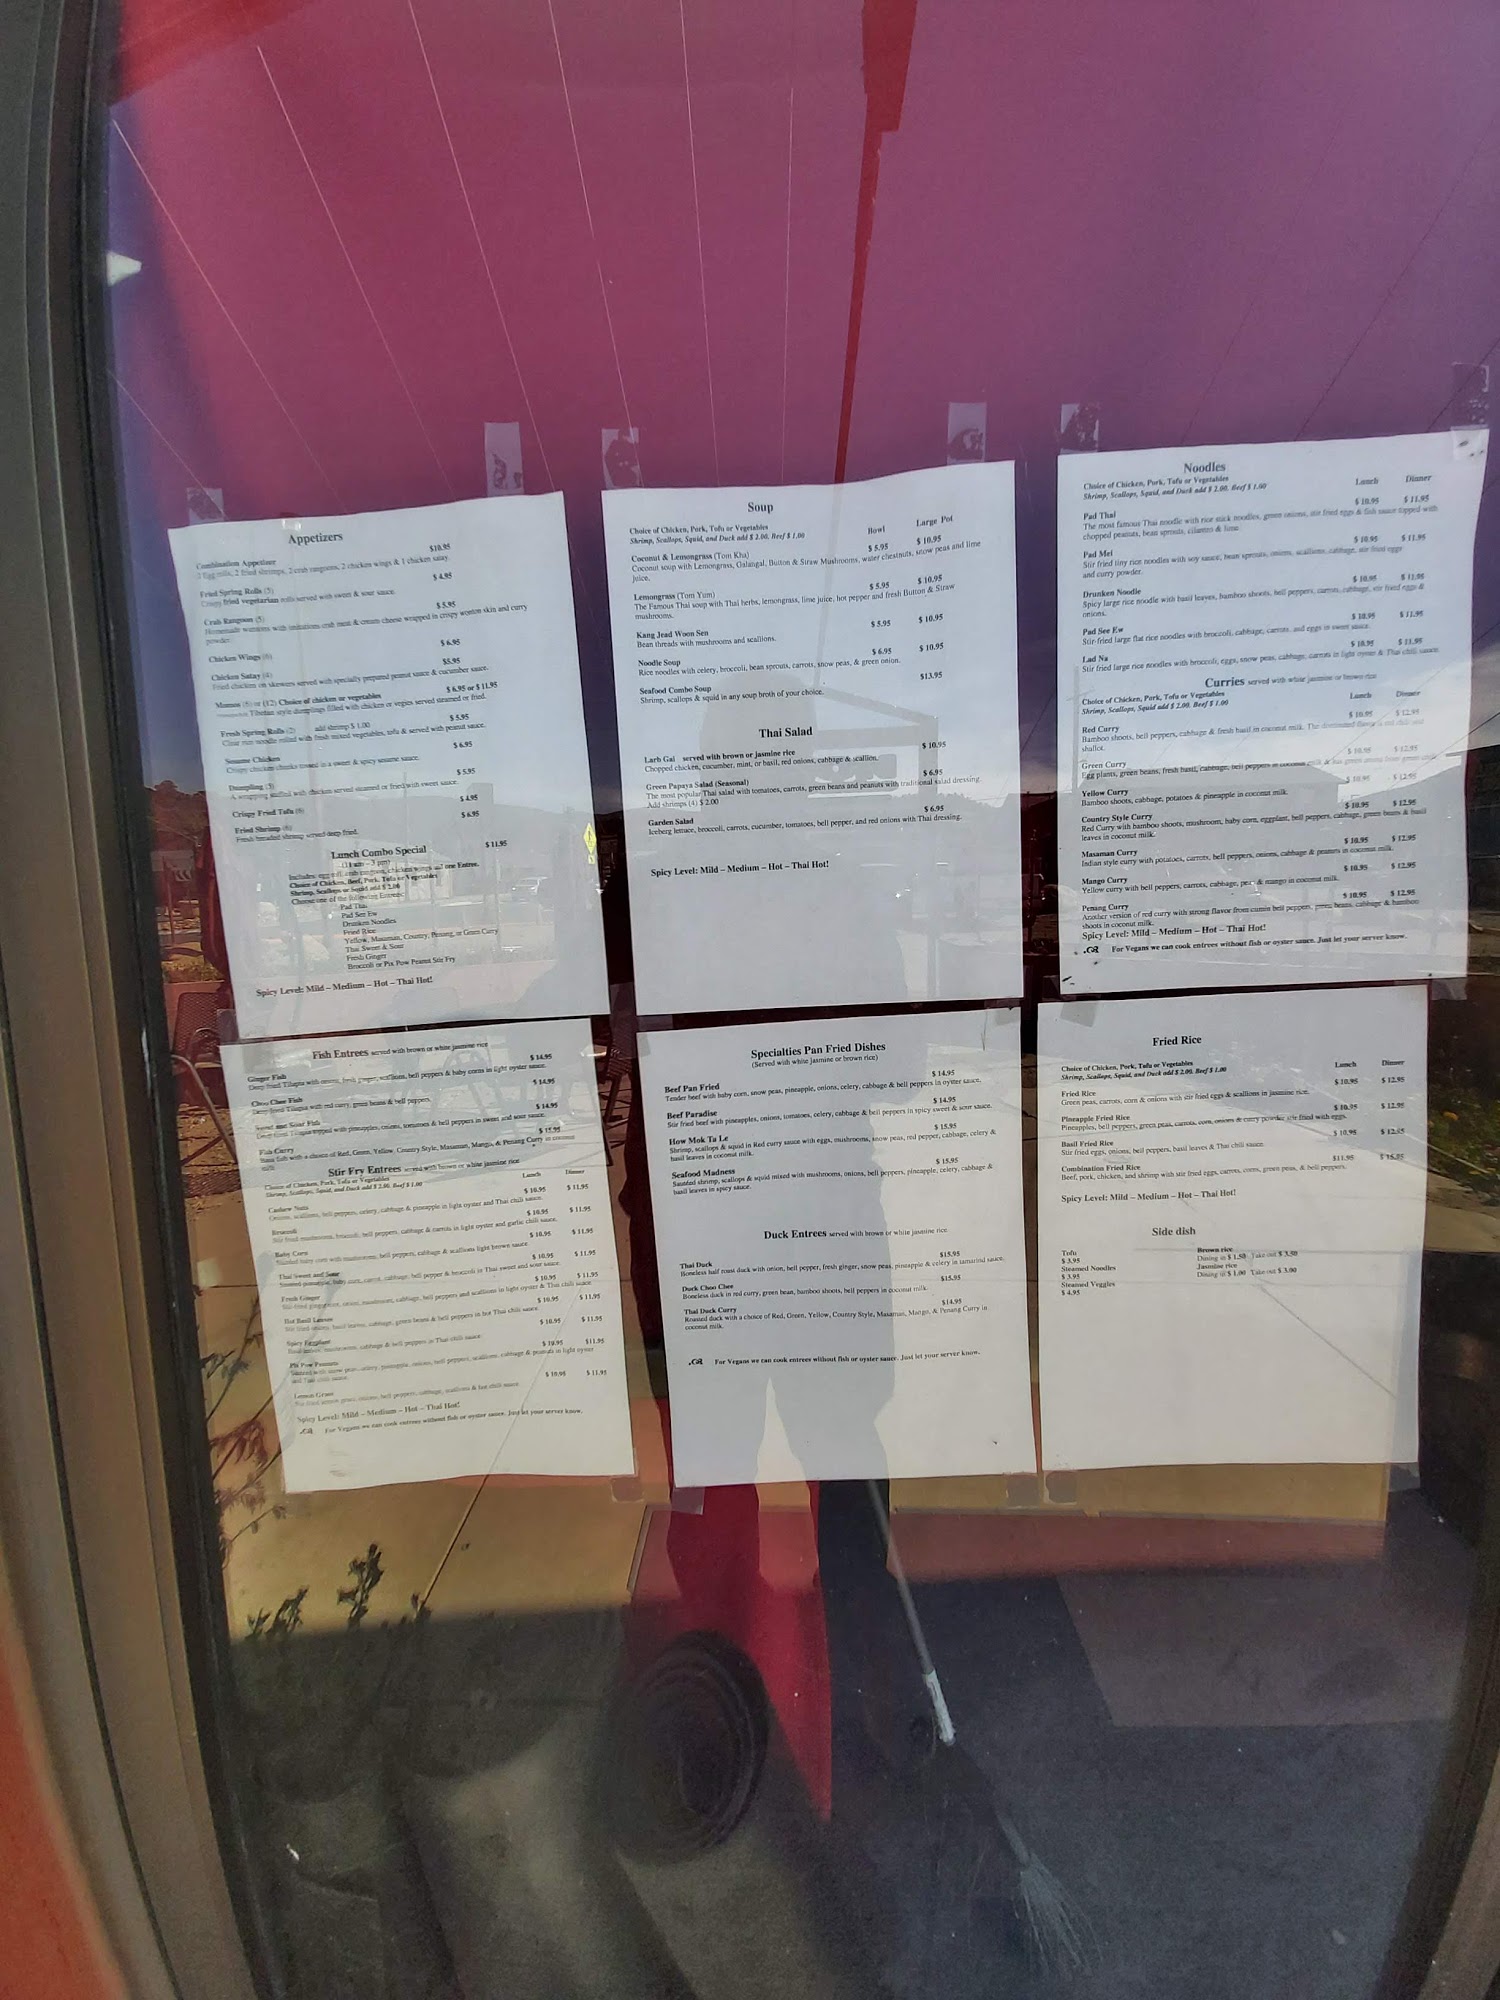 Appetizers
Combination Appetizer $10.95
2 Egg rolls, 2 fried shrimps, 2 crab rangoons, 2 chicken wings & 1 chicken satay.
Fried Spring Rolls (5) $ 4.95
Crispy fried vegetarian rolls served with sweet & sour sauce.
Crab Rangoon (5) $ 5.95
Homemade wontons with imitations crab meat & cream cheese wrapped in crispy wonton skin and curry
powder.
Chicken Wings (6) $ 6.95
Chicken Satay (4) $5.95
Fried chicken on skewers served with specially prepared peanut sauce & cucumber sauce.
Momos (6) or (12) Choice of chicken or vegetables $ 6.95 or $ 11.95
Tibetan style dumplings filled with chicken or vegies served steamed or fried.
Fresh Spring Rolls (2) add shrimp $ 1.00 $ 5.95
Clear rice noodle rolled with fresh mixed vegetables, tofu & served with peanut sauce.
Sesame Chicken $ 6.95
Crispy chicken chunks tossed in a sweet & spicy sesame sauce.
Dumpling (5) $ 5.95
A wrapping stuffed with chicken served steamed or fried with sweet sauce.
Crispy Fried Tofu (8) $ 4.95
Fried Shrimp (6) $ 6.95
Fresh breaded shrimp served deep fried.
Lunch Combo Special $ 11.95
(11 am – 3 pm)
Includes: egg roll, crab rangoon, chicken wings and one Entree.
Choice of Chicken, Beef, Pork, Tofu or Vegetables
Shrimp, Scallops or Squid add $ 2.00
Choose one of the following Entrees:
Pad Thai
Pad See Ew
Drunken Noodles
Fried Rice
Yellow, Masaman, Country, Penang, or Green Curry
Thai Sweet & Sour
Fresh Ginger
Broccoli or Pix Pow Peanut Stir Fry
Spicy Level: Mild – Medium – Hot – Thai Hot!
Soup
Choice of Chicken, Pork, Tofu or Vegetables
Shrimp, Scallops, Squid, and Duck add $ 2.00. Beef $ 1.00
Bowl Large Pot
Coconut & Lemongrass (Tom Kha) $ 5.95 $ 10.95
Coconut soup with Lemongrass, Galangal, Button & Straw Mushrooms, water chestnuts, snow peas and lime
juice.
Lemongrass (Tom Yum) $ 5.95 $ 10.95
The Famous Thai soup with Thai herbs, lemongrass, lime juice, hot pepper and fresh Button & Straw
mushrooms.
Kang Jead Woon Sen $ 5.95 $ 10.95
Bean threads with mushrooms and scallions.
Noodle Soup $ 6.95 $ 10.95
Rice noodles with celery, broccoli, bean sprouts, carrots, snow peas, & green onion.
Seafood Combo Soup $13.95
Shrimp, scallops & squid in any soup broth of your choice.
Thai Salad
Larb Gai served with brown or jasmine rice $ 10.95
Chopped chicken, cucumber, mint, or basil, red onions, cabbage & scallion.
Green Papaya Salad (Seasonal) $ 6.95
The most popular Thai salad with tomatoes, carrots, green beans and peanuts with traditional salad dressing.
Add shrimps (4) $ 2.00
Garden Salad $ 6.95
Iceberg lettuce, broccoli, carrots, cucumber, tomatoes, bell pepper, and red onions with Thai dressing.
Spicy Level: Mild – Medium – Hot – Thai Hot!
Noodles
Choice of Chicken, Pork, Tofu or Vegetables
Shrimp, Scallops, Squid, and Duck add $ 2.00. Beef $ 1.00
Lunch Dinner
Pad Thai $ 10.95 $ 11.95
The most famous Thai noodle with rice stick noodles, green onions, stir fried eggs & fish sauce topped with
chopped peanuts, bean sprouts, cilantro & lime.
Pad Mei $ 10.95 $ 11.95
Stir fried tiny rice noodles with soy sauce, bean sprouts, onions, scallions, cabbage, stir fried eggs
and curry powder.
Drunken Noodle $ 10.95 $ 11.95
Spicy large rice noodle with basil leaves, bamboo shoots, bell peppers, carrots, cabbage, stir fried eggs &
onions.
Pad See Ew $ 10.95 $ 11.95
Stir-fried large flat rice noodles with broccoli, cabbage, carrots, and eggs in sweet sauce.
Lad Na $ 10.95 $ 11.95
Stir fried large rice noodles with broccoli, eggs, snow peas, cabbage, carrots in light oyster & Thai chili sauce.
Curries served with white jasmine or brown rice
Choice of Chicken, Pork, Tofu or Vegetables
Shrimp, Scallops, Squid add $ 2.00. Beef $ 1.00
Lunch Dinner
Red Curry $ 10.95 $ 12.95
Bamboo shoots, bell peppers, cabbage & fresh basil in coconut milk. The dominated flavor is red chili and
shallot.
Green Curry $ 10.95 $ 12.95
Egg plants, green beans, fresh basil, cabbage, bell peppers in coconut milk & has green aroma from green chili
Yellow Curry $ 10.95 $ 12.95
Bamboo shoots, cabbage, potatoes & pineapple in coconut milk.
Country Style Curry $ 10.95 $ 12.95
Red Curry with bamboo shoots, mushroom, baby corn, eggplant, bell peppers, cabbage, green beans & basil
leaves in coconut milk.
Masaman Curry $ 10.95 $ 12.95
Indian style curry with potatoes, carrots, bell peppers, onions, cabbage & peanuts in coconut milk.
Mango Curry $ 10.95 $ 12.95
Yellow curry with bell peppers, carrots, cabbage, peas & mango in coconut milk.
Penang Curry $ 10.95 $ 12.95
Another version of red curry with strong flavor from cumin bell peppers, green beans, cabbage & bamboo
shoots in coconut milk.
Spicy Level: Mild – Medium – Hot – Thai Hot!
For Vegans we can cook entrees without fish or oyster sauce. Just let your server know.
Fish Entrees served with brown or white jasmine rice
Ginger Fish $ 14.95
Deep fried Tilapia with onions, fresh ginger, scallions, bell peppers & baby corns in light oyster sauce.
Choo Chee Fish $ 14.95
Deep fried Tilapia with red curry, green beans & bell peppers.
Sweet and Sour Fish $ 14.95
Deep fried Tilapia topped with pineapples, onions, tomatoes & bell peppers in sweet and sour sauce.
Fish Curry $ 15.95
Basa fish with a choice of Red, Green, Yellow, Country Style, Masaman, Mango, & Penang Curry in coconut
milk.
Stir Fry Entrees served with brown or white jasmine rice
Choice of Chicken, Pork, Tofu or Vegetables
Shrimp, Scallops, Squid, and Duck add $ 2.00. Beef $ 1.00
Lunch Dinner
Cashew Nuts $ 10.95 $ 11.95
Onions, scallions, bell peppers, celery, cabbage & pineapple in light oyster and Thai chili sauce.
Broccoli $ 10.95 $ 11.95
Stir fried mushrooms, broccoli, bell peppers, cabbage & carrots in light oyster and garlic chili sauce.
Baby Corn $ 10.95 $ 11.95
Sauteed baby corn with mushrooms, bell peppers, cabbage & scallions light brown sauce.
Thai Sweet and Sour $ 10.95 $ 11.95
Sauteed pineapple, baby corn, carrot, cabbage, bell pepper & broccoli in Thai sweet and sour sauce.
Fresh Ginger $ 10.95 $ 11.95
Stir-fried ginger root, onion, mushroom, cabbage, bell peppers and scallions in light oyster & Thai chili sauce.
Hot Basil Leaves $ 10.95 $ 11.95
Stir fried onions, basil leaves, cabbage, green beans & bell peppers in hot Thai chili sauce.
Spicy Eggplant $ 10.95 $ 11.95
Basil, mushrooms, cabbage & bell peppers in Thai chili sauce.
Pix Pow Peanuts $ 10.95 $11.95
Sauteed with snow peas, celery, pineapple, onions, bell peppers, scallions, cabbage & peanuts in light oyster
and Thai chili sauce.
Lemon Grass $ 10.95 $ 11.95
Stir fried lemon grass, onions, bell peppers, cabbage, scallions & hot chili sauce.
Spicy Level: Mild – Medium – Hot – Thai Hot!
For Vegans we can cook entrees without fish or oyster sauce. Just let your server know.
Specialties Pan Fried Dishes
(Served with white Jasmine or brown rice)
Beef Pan Fried $ 14.95
Tender beef with baby corn, snow peas, pineapple, onions, celery, cabbage & bell peppers in oyster sauce.
Beef Paradise $ 14.95
Stir fried beef with pineapples, onions, tomatoes, celery, cabbage & bell peppers in spicy sweet & sour sauce.
How Mok Ta Le $ 15.95
Shrimp, scallops & squid in Red curry sauce with eggs, mushrooms, snow peas, red pepper, cabbage, celery &
basil leaves in coconut milk.
Seafood Madness $ 15.95
Sauteed shrimp, scallops & squid mixed with mushrooms, onions, bell peppers, pineapple, celery, cabbage &
basil leaves in spicy sauce.
Duck Entrees served with brown or white jasmine rice
Thai Duck $15.95
Boneless half roast duck with onion, bell pepper, fresh ginger, snow peas, pineapple & celery in tamarind sauce.
Duck Choo Chee $15.95
Boneless duck in red curry, green bean, bamboo shoots, bell peppers in coconut milk.
Thai Duck Curry $14.95
Roasted duck with a choice of Red, Green, Yellow, Country Style, Masaman, Mango, & Penang Curry in
coconut milk.
For Vegans we can cook entrees without fish or oyster sauce. Just let your server know.
Fried Rice
Choice of Chicken, Pork, Tofu or Vegetables
Shrimp, Scallops, Squid, and Duck add $ 2.00. Beef $ 1.00
Lunch Dinner
Fried Rice $ 10.95 $ 12.95
Green peas, carrots, corn & onions with stir fried eggs & scallions in jasmine rice.
Pineapple Fried Rice $ 10.95 $ 12.95
Pineapples, bell peppers, green peas, carrots, corn, onions & curry powder stir fried with eggs.
Basil Fried Rice $ 10.95 $ 12.95
Stir fried eggs, onions, bell peppers, basil leaves & Thai chili sauce.
Combination Fried Rice $11.95 $ 15.95
Beef, pork, chicken, and shrimp with stir fried eggs, carrots, corns, green peas, & bell peppers.
Spicy Level: Mild – Medium – Hot – Thai Hot!
Side dish
Tofu
$ 3.95
Steamed Noodles
$ 3.95
Steamed Veggies
$ 4.95
Brown rice
Dining in $ 1.50 Take out $ 3.50
Jasmine rice
Dining in $ 1.00 Take out $ 3.00